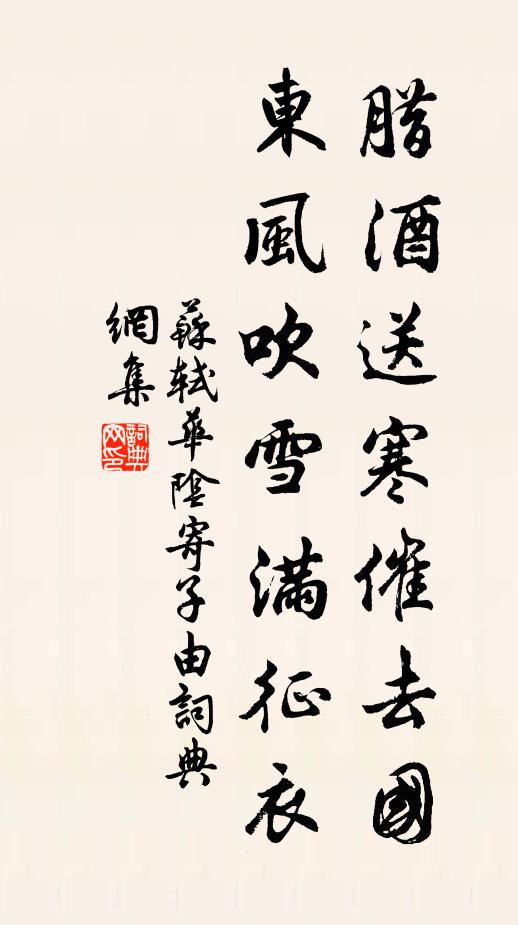 腊酒送寒催去國
東風吹雪滿征衣
蘇軾華陰寄子由詞典
網集
詞典網印